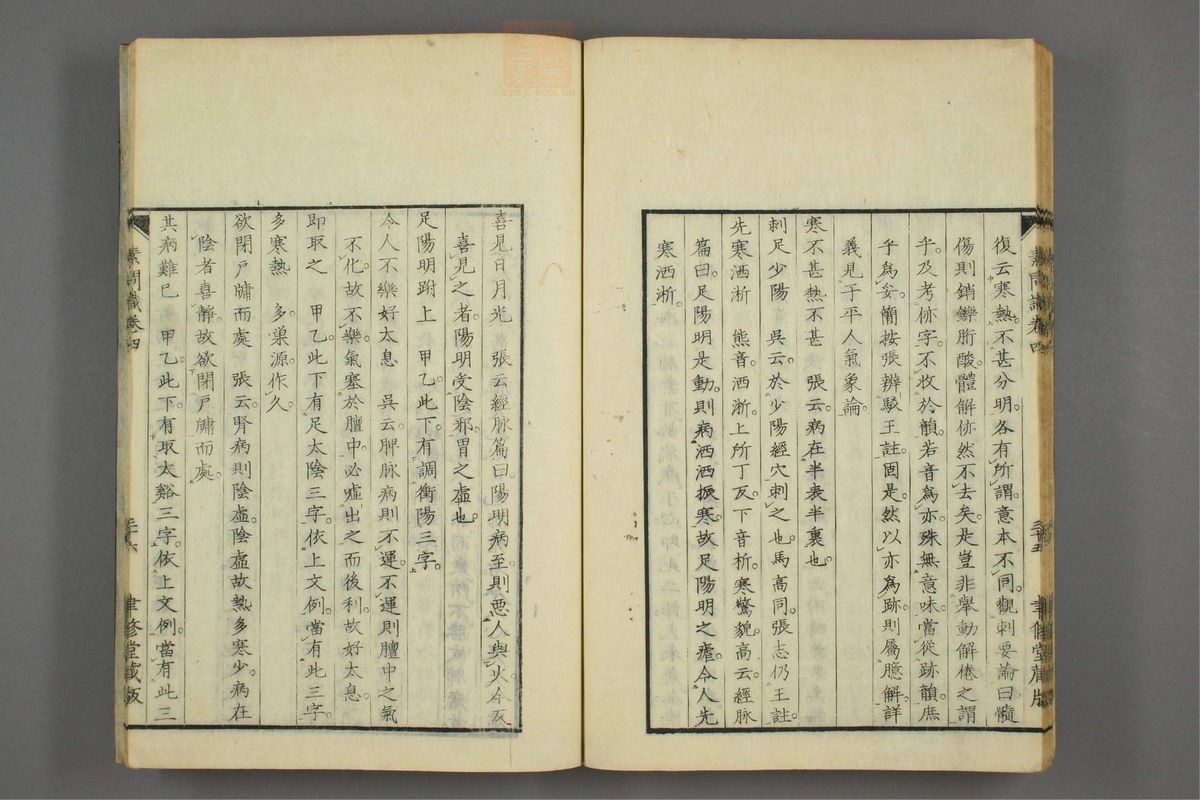 復云寒熱。不甚分明。各有所謂。意本不同。觀刺要論曰。髓
傷則銷鑠胻酸。體解㑊然不去矣。是豈非舉動解倦之謂
乎。及考㑊字。不收於韻。若音爲亦。殊無意味。當從跡韻。庶
乎爲妥。簡按張辨駁王註。固是。然以亦爲跡。則屬臆解。詳
義見于平人氣象論。
寒不甚熱不甚　張云。病在半表半裏也。
刺足少陽　吳云。於少陽經穴刺之也。馬高同。張志仍王註。
先寒洒淅　熊音。洒淅。上所丁反。下音析。寒驚貌。高云。經脉
篇曰。足陽明是動。則病洒洒振寒。故足陽明之瘧。令人先
寒洒淅。
素問識卷四
三十五
聿修堂藏版
喜見日月光　張云。經脉篇曰。陽明病至。則惡人與火。今反
喜見之者。陽明受陰邪。胃之虛也。
足陽明跗上　甲乙。此下。有調衝陽三字。
令人不樂好太息　吳云。脾脉病則不運。不運則膻中之氣
不化。故不樂。氣塞於膻中。必噓出之而後利。故好太息。
即取之　甲乙。此下有足太陰三字。依上文例。當有此三字。
多寒熱　多。巢源。作久。
欲閉戶牖而處　張云。腎病則陰虛。陰虛故熱多寒少。病在
陰者喜靜。故欲閉戶牖而處。
其病難已　甲乙。此下。有取太谿三字。依上文例。當有此三
素問識卷四
三十六
聿修堂藏版